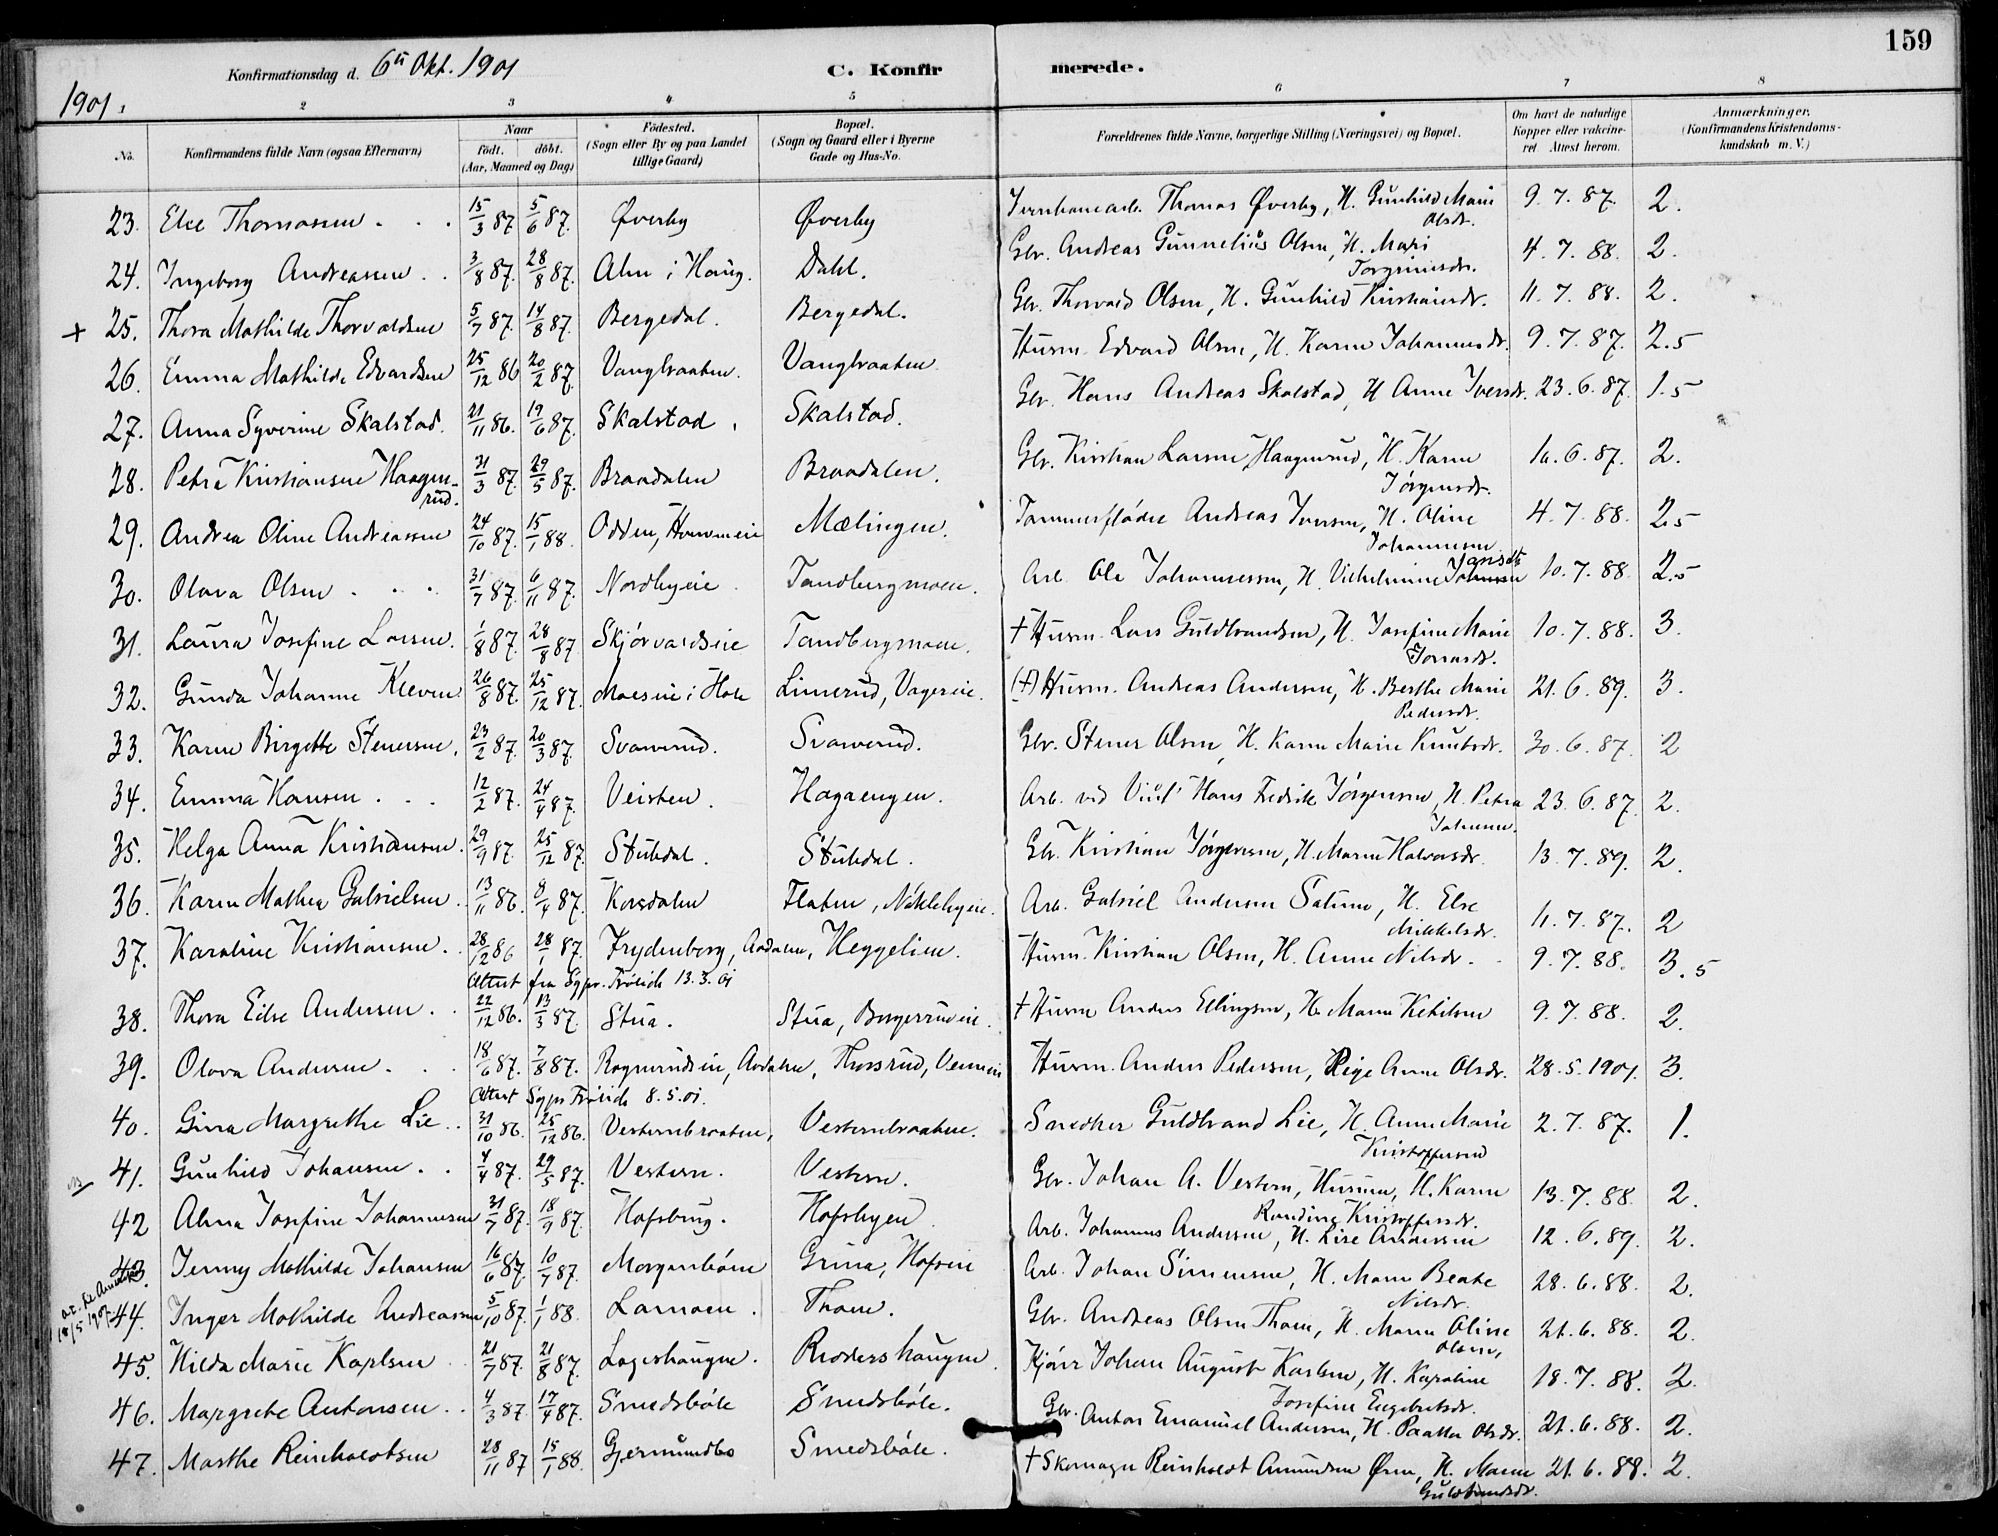 159
Konfirmationsdag d. 6te Okt. 1901
C. Konfirmerede.
1901.
1 2 3 4 5 6 7 8
No. Konfirmandens fulde Navn (ogsaa Efternavn) Naar født. døbt. (Aar, Maaned og Dag) Fødested. (Sogn eller By og paa Landet tillige Gaard) Bopæl. (Sogn og Gaard eller i Byerne Gade og Hus-No. Forældrenes fulde Navne, borgerlige Stilling (Næringsvei) og Bopæl. Om havt de naturlige Kopper eller vaccineret Attest herom. Anmærkninger. (Konfirmandens Kristendomskundskab m. V.)
23. Else Thomassen . . . 15/3 87 5/6 87. Øverby Øverby Jernbanearb. Thomas Øverby, H. Gunhild Marie Olsdr. 9. 7. 87. 2.
24. Ingeborg Andreassen . . 3/8 87. 28/8 87. Alm i Haug. Dahl. Gbr. Andreas Gunnelius Olsen, H. Mari Torgrimsdr. 4. 7. 88. 2.
+ 25. Thora Mathilde Thorvaldsen 5/7 87. 14/8 87. Bergedal. Bergedal. Gbr. Thorvald Olsen, H. Gunhild Kristiansdr. 11. 7. 88. 2.
26. Emma Mathilde Edvardsen 25/12 86 20/2 87. Vangbraaten. Vangbraaten Husm. Edvard Olsen, H. Karen Johannesdr. 9. 7. 87. 2.5
27. Anna Syverine Skalstad. 21/11 86. 19/6 87. Skalstad. Skalstad. Gbr. Hans Andreas Skalstad, H Anne Iversdr. 23. 6. 87. 1.5
28. Petra Kristiansen Haagenrud. 31/3 87. 29/5 87. Braadalen Braadalen. Gbr. Kristian Larsen Haagenrud, H. Karen Jørgensdr. 10. 6. 87. 2.
29. Andrea Oline Andreassen 24/10 87. 15/1 88. Odden, Mælingen. Tømmerfløder Andreas Iversen, H. Oline Johannesen 4. 7. 88. 2.5
30. Olava Olsen . . . 31/7 87. 6/11 87. Nordbyeie Tandbergmoen. Arb. Ole Johannessen, H. Vilhelmine Jansdr. 10. 7. 88. 2.5
31. Laura Josefine Larsen. 1/8 87. 28/8 87 Skjørvaldseie Tandbergmoen. † Husm. Lars Guldbrandsen, H. Josefine Marie 10. 7. 88. 3.
32. Gunda Johanne Kleven 26/8 87. 25/12 87. Moeseie i Hole Limerud, Vagereie. (†) Husm. Andreas Andersen, H. Berthe Marie Pedersdr. 21. 6. 89. 3.
33. Karen Birgitte Stenersen. 23/2 87. 20/3 87. Svarverud. Svarverud. Gbr. Stener Olsen, H. Karen Marie Knutsdr. 30. 6. 87. 2
34. Emma Hansen . . . 12/2 87. 24/4 87. Veisten. Hagaengen. Arb. ved Viul Hans Fredrik Jørgensen, H. Petra Johnsen. 23. 6. 87. 2.
35. Helga Anna Kristiansen. 29/9 87. 25/12 87. Stubdal. Stubdal. Gbr. Kristian Jørgensen, H. Maren Halvorsdr. 13. 7. 89. 2.
36. Karen Mathea Gabrielsen. 13/11 86. 8/4 87. Korsdalen Flaten, Nøklebyeie. Arb. Gabriel Andersen Saturn, H. Else Mikkelsdr. 11. 7. 87. 2
37. Karoline Kristiansen . . 28/12 86 28/1 87. Frydenborg, Aadalen, Heggelien. Husm. Kristian Olsen, H. Anne Nilsdr. . 9. 7. 88. 3.5
Attest fra Sgpr. Frölich 13.3.01
38. Thora Eilse Andersen . . 22/12 86. 13/3 87. Stua. Stua, Borgerrudeie. † Husm Anders Ellingsen, H. Maren Ketilsen 9. 7. 88. 2.
39. Olava Andersen . . . 18/6 87. 7/8 87. Rognerudseie, Aadalen, Thorsrud, Husm. Anders Pedersen, Pige Anne Olsdr. 28. 5. 1901. 3.
Attest Sgpr Frölich 8.5.01.
40. Gina Margrethe Lie . . 31/10 86. 25/12 86. Vesternbraaten, Vesternbraaten. Snedker Guldbrand Lie, H. Anne Marie Kristoffersen 2. 7. 87. 1.
NB 41. Gunhild Johansen . . 4/4 87. 29/5 87. Vestern. Vestern. Gbr. Johan A. Vestern, Hurum, H. Karen Randine Kristoffersdr. 13. 7. 88 2.
42 Alma Josefine Johannesen 31/7 87. 18/9 87. Hofsbrug. Hofsbyen Arb. Johannes Andersen, H. Lise Andersen 12. 6. 89. 2.
43. Jenny Mathilde Johansen 16/6 87. 10/7 87. Morganbøen Grina, Hofseie Arb. Johan Simensen, H. Maren Beate Nilsdr. 28. 6. 88. 2.
18/5 1907. 44. Inger Mathilde Andreassen 5/10 87. 1/1 88. Lamoen. Thoen. Gbr. Andreas Olsen Thoen, H. Maren Oline Olsen, 21. 6. 88. 2.
45. Hilda Marie Karlsen 21/7 87. 21/8 87. Lageshaugen. Rødershaugen. Kjører Johan August Karlsen, H. Karoline Josefine Engebretsdr. 18. 7. 88. 2.
46. Margrete Antonsen . . 4/3 87. 17/4 87. Smedsbøle Smedsbøle. Gbr. Anton Emanuel Andersen, H. Olsdr. 21. 6. 88. 2.
47. Marthe Reinholdtsen 28/11 87 15/1 88. Gjermundbo Smedsbøle. † Skomager Reinholdt Amundsen Øren, H. Maren Guldbrandsdr. 21. 6. 88. 2.